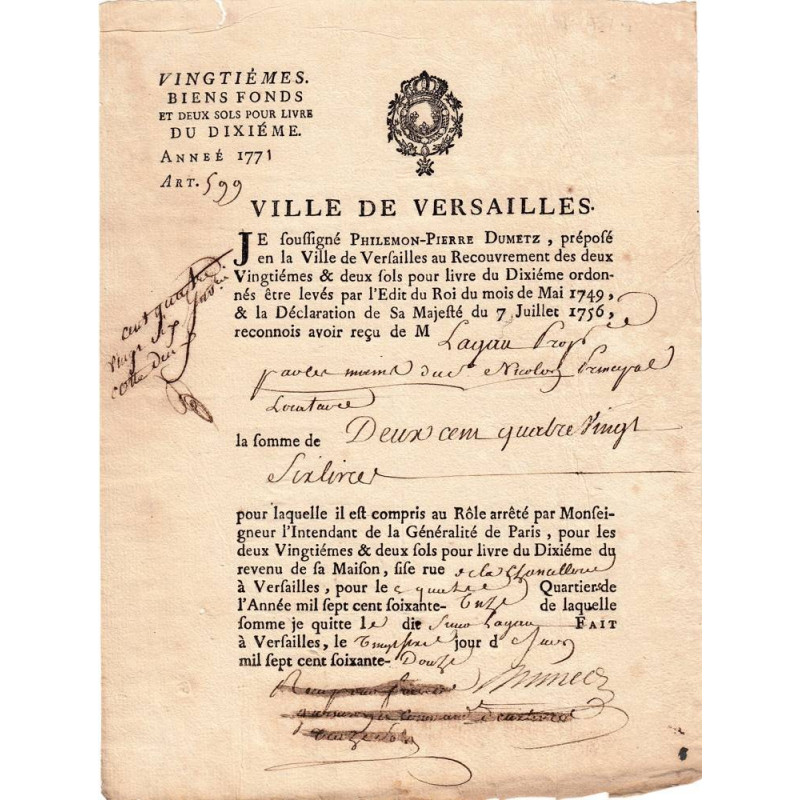 VINGTIÉMES.
BIENS FONDS
ET DEUX SOLS POUR LIVRE
DU DIXIÉME.
ANNEÉ 1771
ART. 599
VILLE DE VERSAILLES.
JE soussigné PHILEMON-PIERRE DUMETZ, préposé
en la Ville de Versailles au Recouvrement des deux
Vingtiémes & deux sols pour livre du Dixiéme ordon-
nés être levés par l'Edit du Roi du mois de Mai 1749,
& la Déclaration de Sa Majesté du 7 Juillet 1756,
reconnois avoir reçu de M Lagau Prop.re
par les mains du Sr Nicolas Principal
Locataire
cent quatre
vingt
cotte
la somme de Deux cent quatre Vingt
Six livres
pour laquelle il est compris au Rôle arrêté par Monsei-
gneur l'Intendant de la Généralité de Paris, pour les
deux Vingtiémes & deux sols pour livre du Dixiéme du
revenu de sa Maison, sise rue de la Chancellerie
à Versailles, pour les quatre Quartiers de
l'Année mil sept cent soixante-Onze de laquelle
somme je quitte le dit Sieur Lagau FAIT
à Versailles, le jour d
mil sept cent soixante-Douze
Dumetz